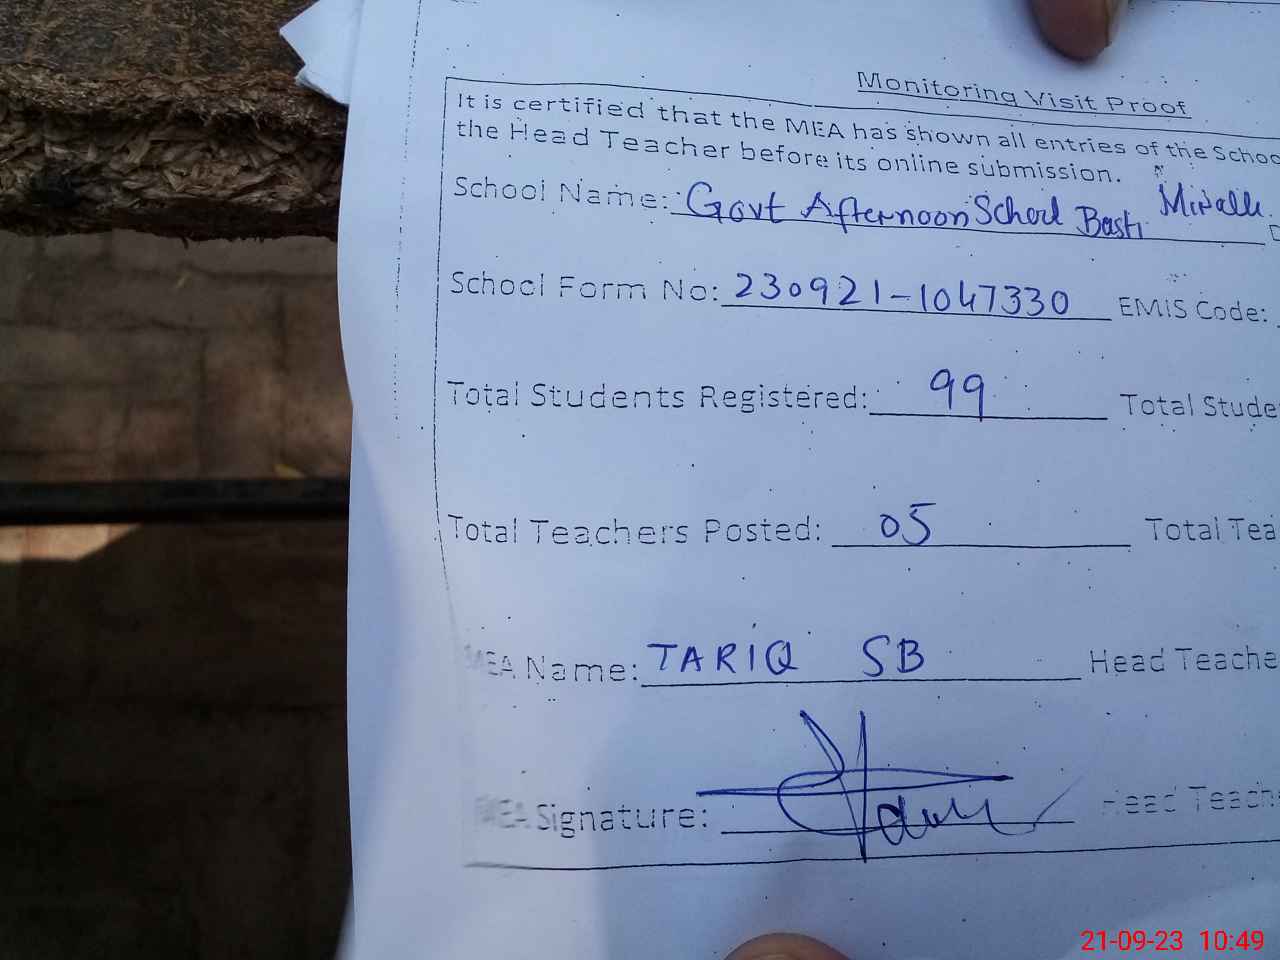 Monitoring Visit Proof
It is certified that the MEA has shown all entries of the Schoo
the Head Teacher before its online submission.
School Name: Govt Afternoon School Basti
School Form No: 230921-1047330 EMIS Code:
Total Students Registered: 99 Total Stude
Total Teachers Posted: 05 Total Tea
MEA Name: TARIQ SB Head Teache
MEA Signature: Head Teach
21-09-23 10:49